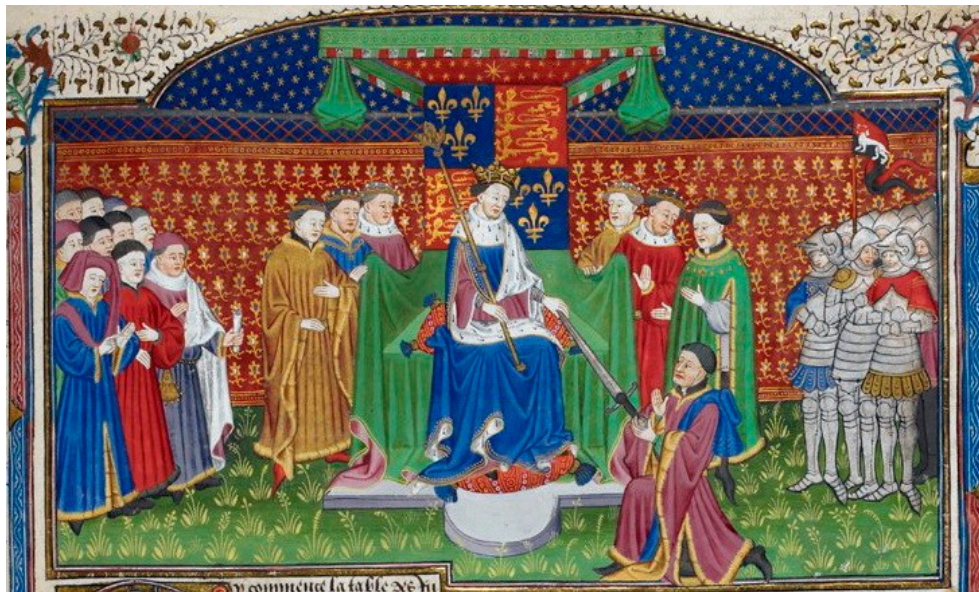 Cy commence la table